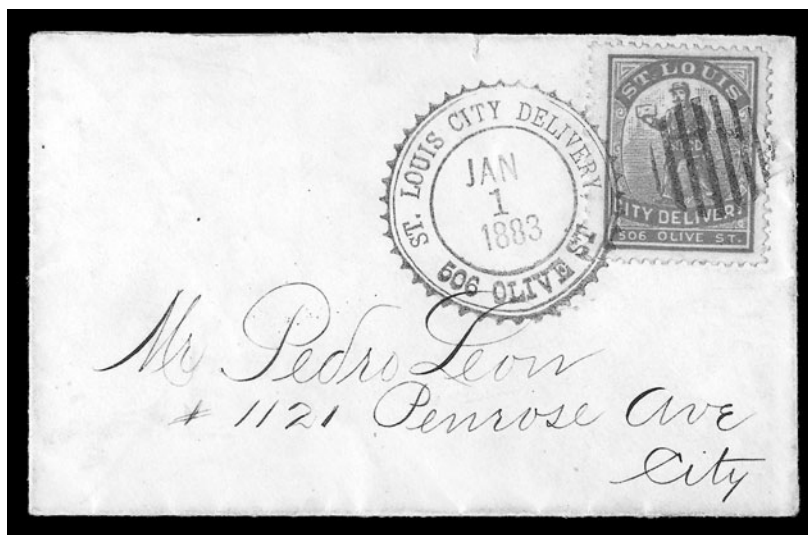 ST. LOUIS CITY DELIVERY,
JAN
1
1883
506 OLIVE ST
ST. LOUIS
CITY DELIVERY
506 OLIVE ST.
Mr Pedro Leon
# 1121 Penrose Ave
City